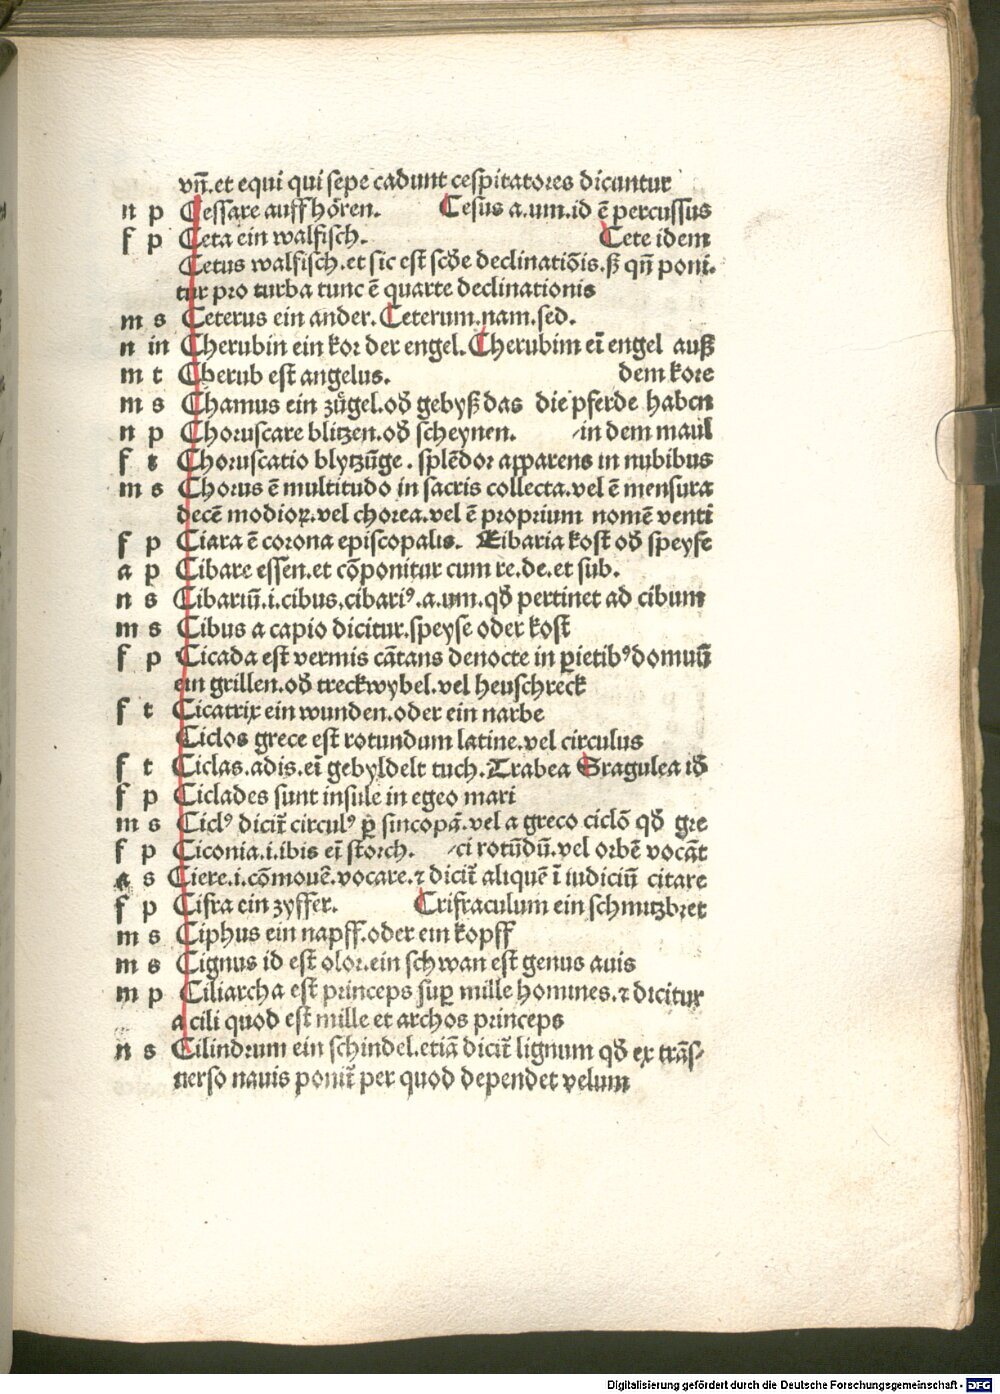 vñ.et equi qui sepe cadunt cespitatores dicuntur
n p Cessare auffhören. Cesus a.um.id ē percussus
f p Ceta ein walfisch. Cete idem
Cetus walfisch.et sic est scđe declinatiōis.ꝭ qñ poni⸗
tur pro turba tunc ē quarte declinationis
m s Ceterus ein ander. Ceterum.nam.sed.
n in Cherubin ein kor der engel. Cherubim eī engel auß
m t Cherub est angelus. dem kore
m s Chamus ein zügel.ođ gebyß das die pferde haben
n p Choruscare blitzen.ođ scheynen. in dem maul
f t Choruscatio blytzūge. splēdor apparens in nubibus
m s Chorus ē multitudo in sacris collecta.vel ē mensura
decē modioꝝ.vel chorea.vel ē proprium nomē venti
f p Ciara ē corona episcopalis. Cibaria kost ođ speyse
a p Cibare essen.et cōponitur cum re.de.et sub.
n s Cibariū.i.cibus.cibariꝰ.a.um.qđ pertinet ad cibum
m s Cibus a capio dicitur.speyse oder kost
f p Cicada est vermis cātans denocte in ꝑietibꝰ domuū
ein grillen.ođ treckwybel.vel heuschreck
f t Cicatrix ein wunden.oder ein narbe
Ciclos grece est rotundum latine.vel circulus
f t Ciclas.adis.eī gebyldelt tuch.Trabea Sragulea iđ
f p Ciclades sunt insule in egeo mari
m s Ciclꝰ dicit̄ circulꝰ ꝑ sincopā.vel a greco ciclō qđ gre
f p Ciconia.i.ibis eī storch. ci rotūdū.vel orbē vocāt
a s Ciere.i.cōmouē.vocare.⁊ dicit̄ aliquē ī iudiciū citare
f p Cifra ein zyffer. Crifraculum ein schmutzbret
m s Ciphus ein napff.oder ein kopff
m s Cignus id est olor.ein schwan est genus auis
m p Ciliarcha est princeps suꝑ mille homines.⁊ dicitur
a cili quod est mille et archos princeps
n s Cilindrum ein schindel.etiā dicit̄ lignum qđ ex trās⸗
uerso nauis ponit̄ per quod dependet velum
Digitalisierung gefördert durch die Deutsche Forschungsgemeinschaft - DFG